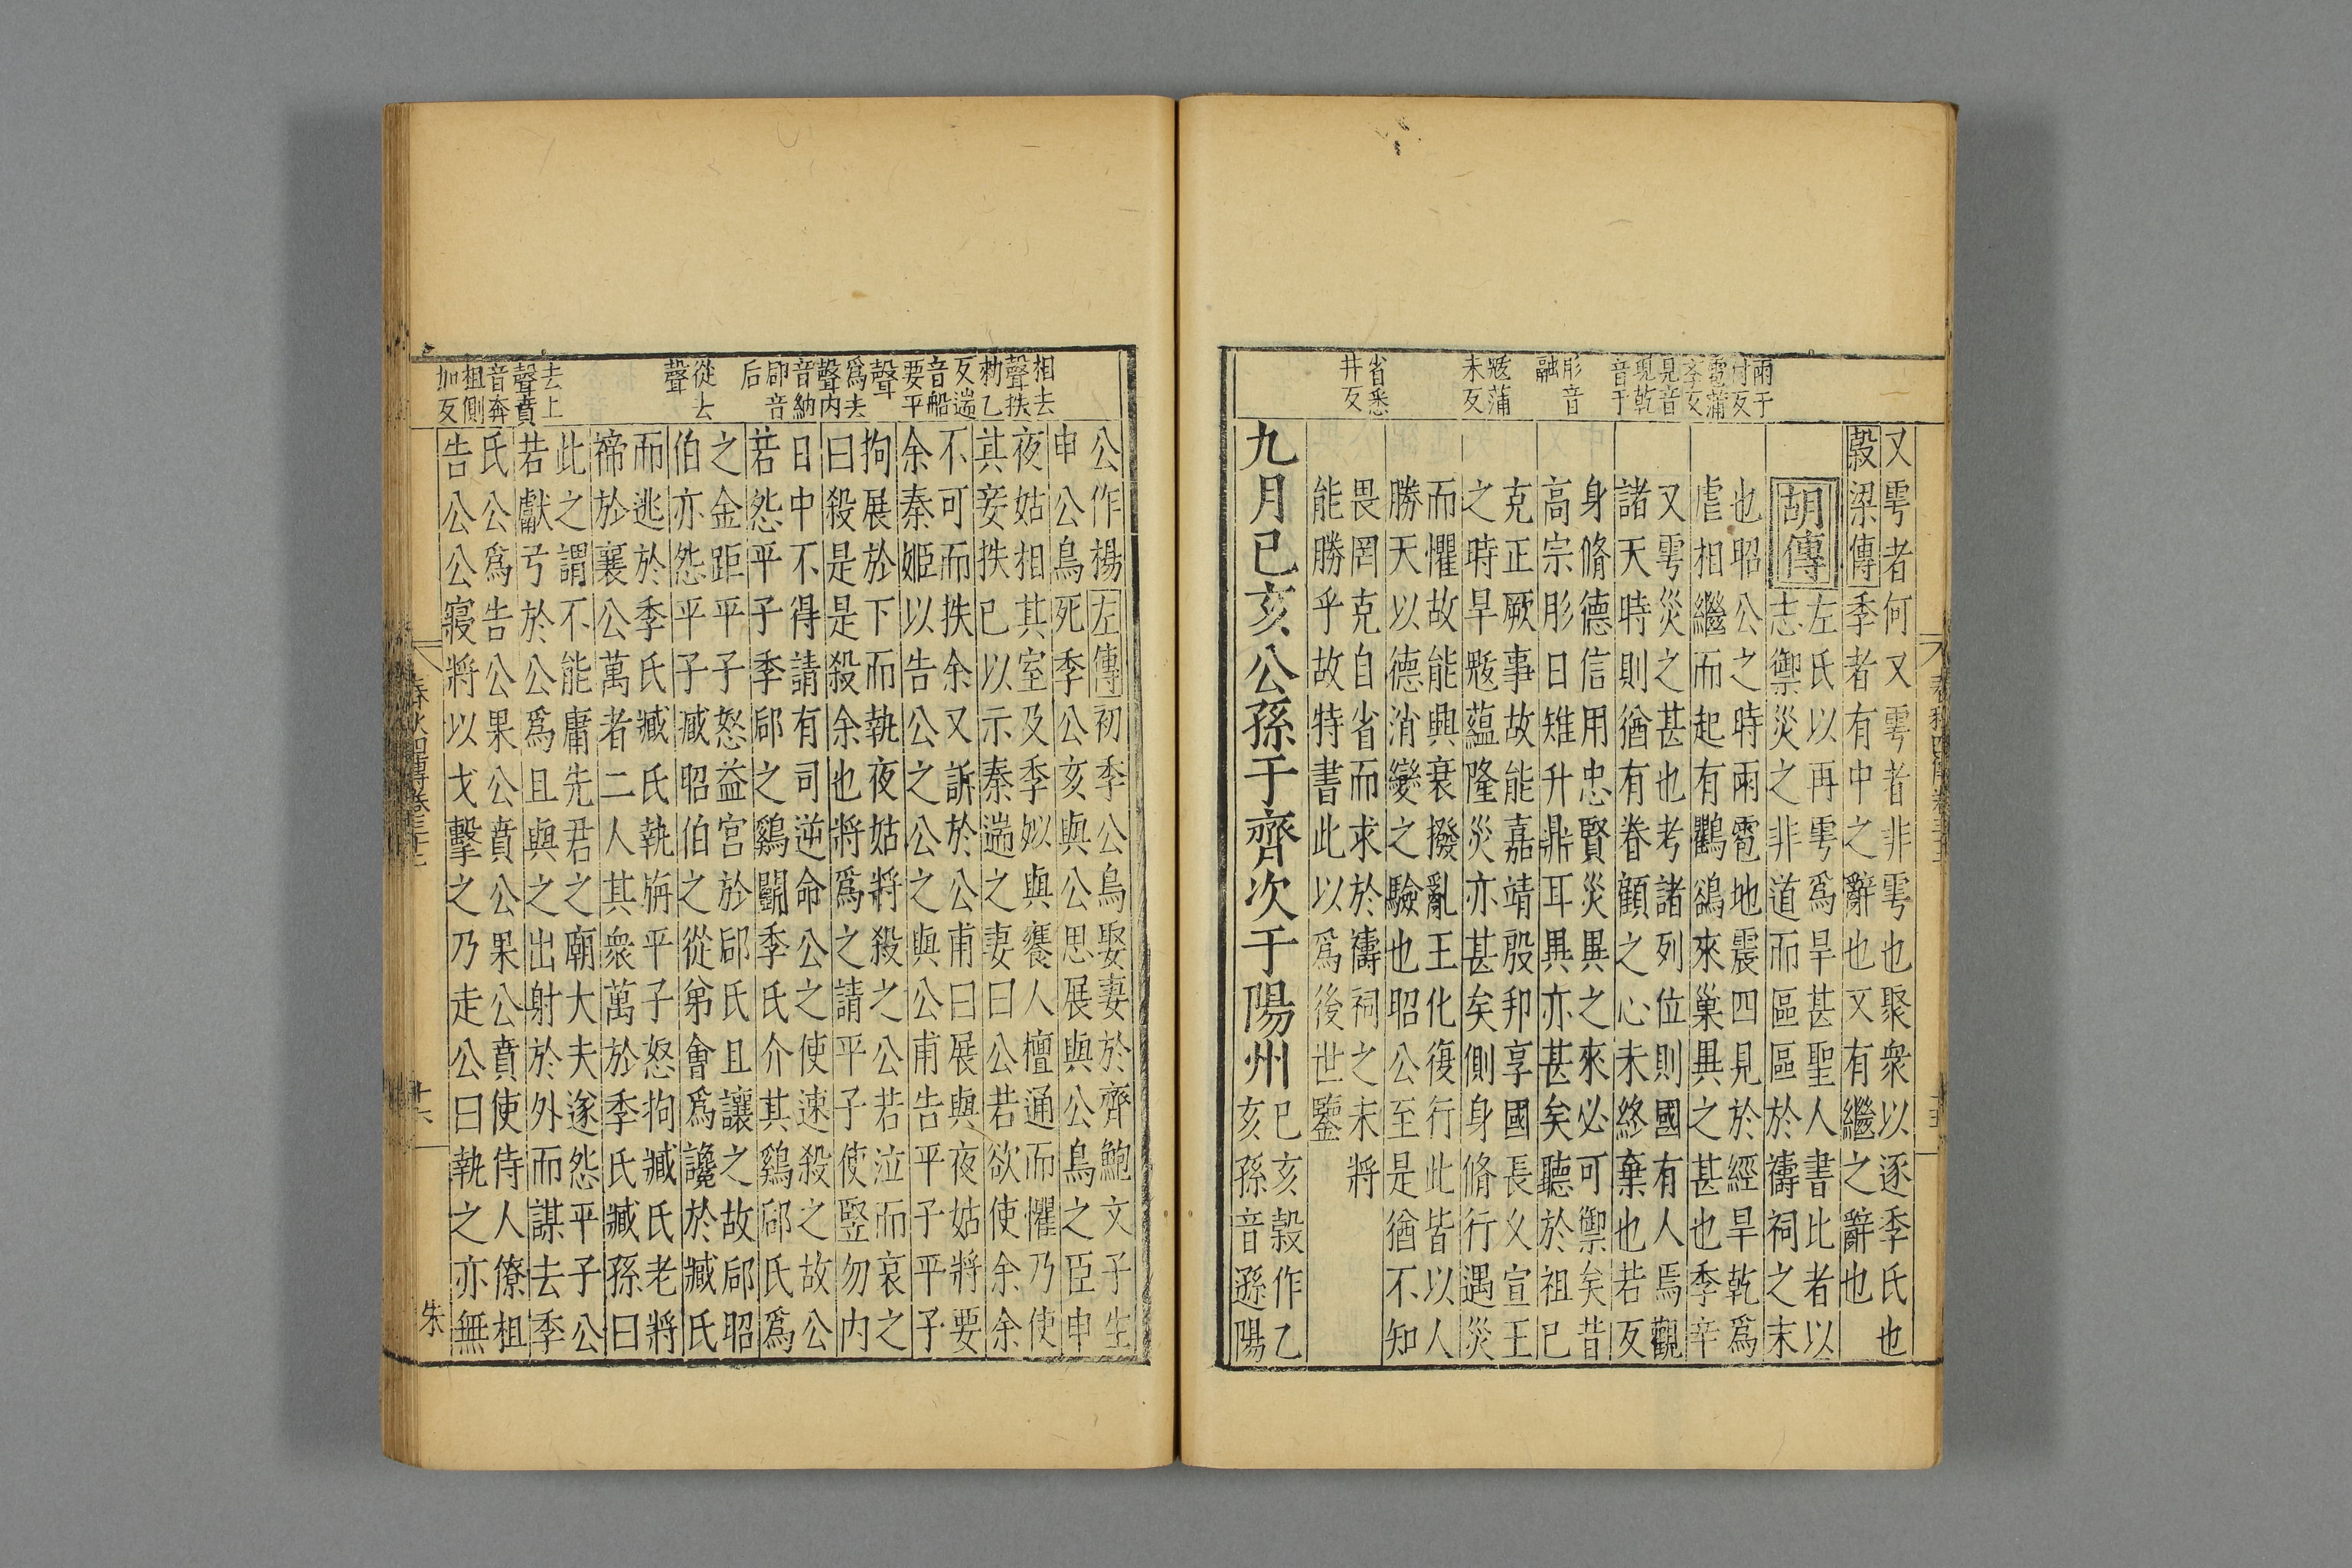 又雩者何又雩者非雩也聚衆以逐季氏也
穀梁傳季者有中之辭也又有繼之辭也
胡傳
左氏以再雩爲旱甚聖人書此者以
志禦災之非道而區區於禱祠之末
也昭公之時雨雹地震四見於經旱乾爲
虐相繼而起有鸜鵒來巢異之甚也季辛
又雩災之甚也考諸列位則國有人焉觀
諸天時則猶有眷顧之心未終棄也若反
身脩德信用忠賢災異之來必可禦矣昔
高宗肜日雉升鼎耳異亦甚矣聽於祖己
克正厥事故能嘉靖殷邦享國長乂宣王
之時旱魃蘊隆災亦甚矣側身脩行遇災
而懼故能興衰撥亂王化復行此皆以人
勝天以德消變之驗也昭公至是猶不知
畏罔克自省而求於禱祠之末將
能勝乎故特書此以爲後世鑒
九月已亥公孫于齊次于陽州
已亥穀作乙
亥孫音遜陽
雨于
付反
雹蒲
孝反
見音
現乾
音干
肜音
融
魃蒲
末反
省悉
井反
公作楊左傳初季公鳥娶妻於齊鮑文子生
申公鳥死季公亥與公思展與公鳥之臣申
夜姑相其室及季姒與饔人檀通而懼乃使
其妾抶已以示秦遄之妻曰公若欲使余余
不可而抶余又訴於公甫曰展與夜姑將要
余秦姬以告公之公之與公甫告平子平子
拘展於下而執夜姑將殺之公若泣而哀之
曰殺是是殺余也將爲之請平子使豎勿内
日中不得請有司逆命公之使速殺之故公
若怨平子季郈之鷄鬬季氏介其鷄郈氏爲
之金距平子怒益宮於郈氏且讓之故郈昭
伯亦怨平子臧昭伯之從弟會爲讒於臧氏
而逃於季氏臧氏執旃平子怒拘臧氏老將
禘於襄公萬者二人其衆萬於季氏臧孫曰
此之謂不能庸先君之廟大夫遂怨平子公
若獻弓於公爲且與之出射於外而謀去季
氏公爲告公果公賁公果公賁使侍人僚柤
告公公寢將以戈擊之乃走公曰執之亦無
相去
聲抶
勑乙
反遄
音船
要平
聲
爲去
聲内
音納
郈音
后
從去
聲
去上
聲賁
音奔
柤側
加反
春秋四傳卷三十三
十六
朱